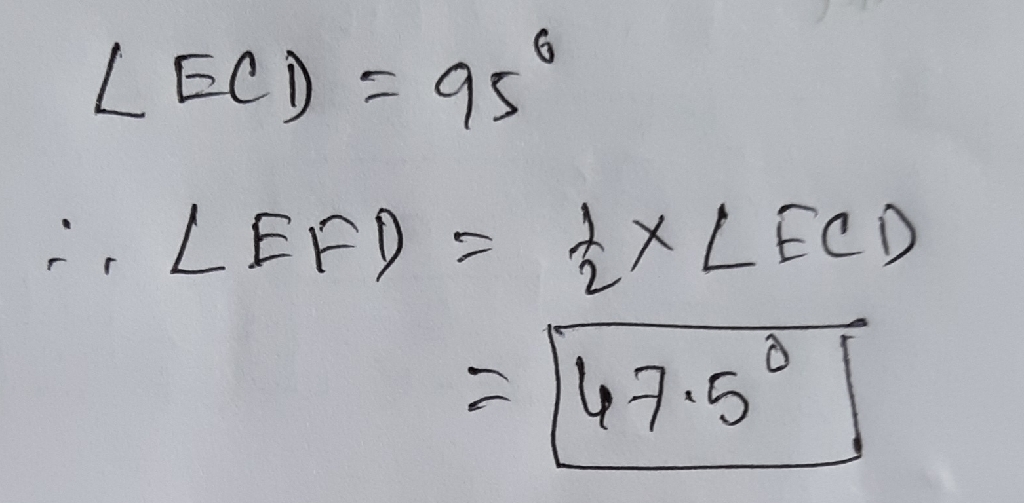 ∠ECD = 95°
∴ ∠EFD = 1/2 × ∠ECD
= 47.5°